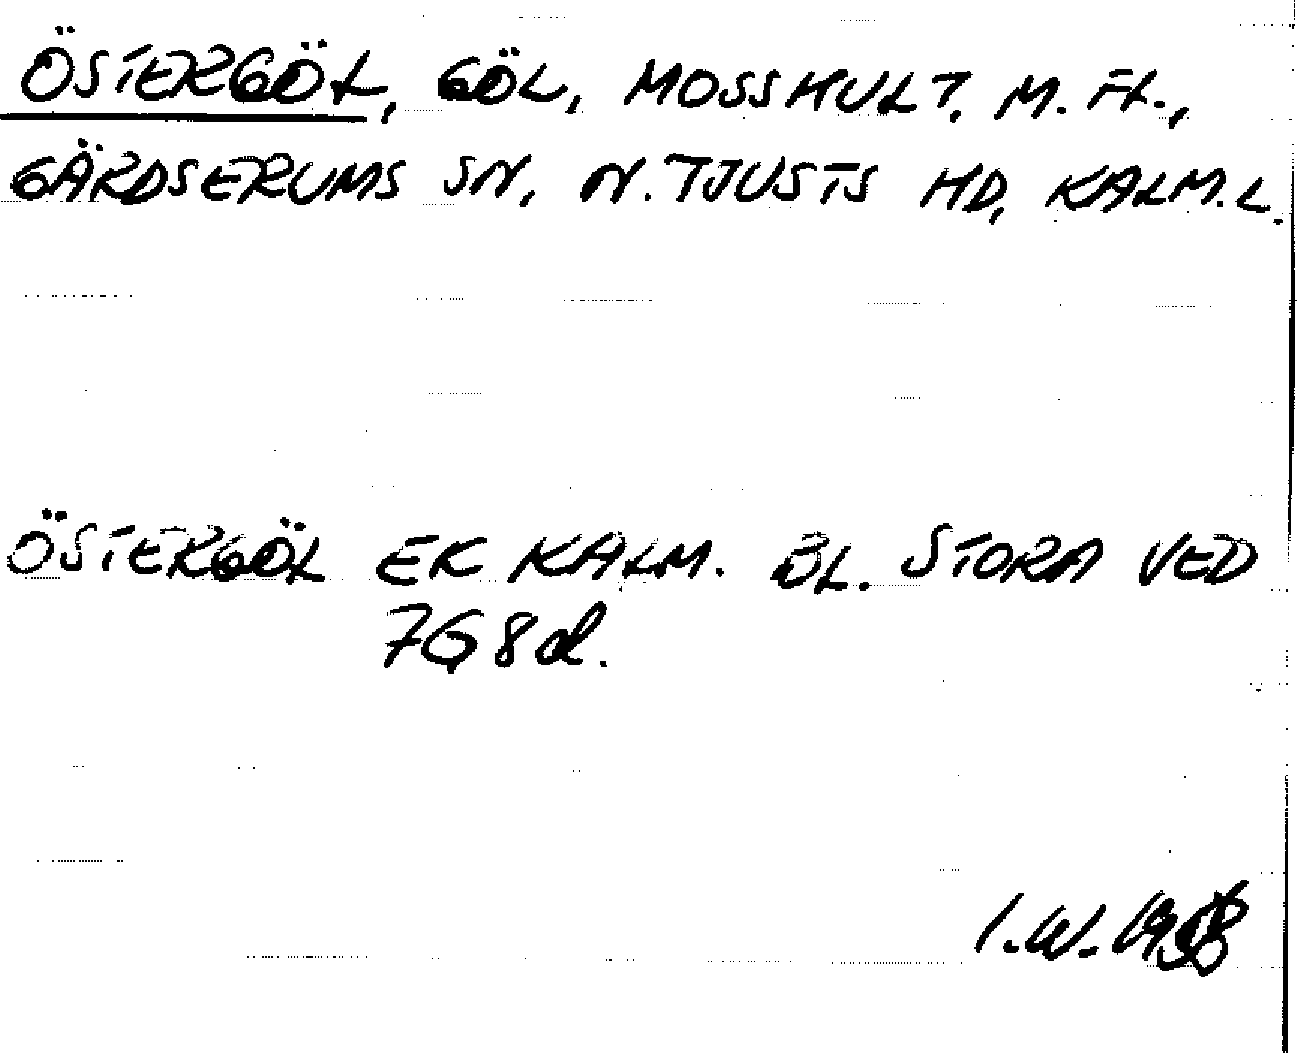 ÖSTERGÖL, GÖL, MOSSHULT, M. FL.,
GÄRDSERUMS SN, N. TJUSTS HD, KALM. L.
ÖSTERGÖL EK KALM. BL. STORA VED
7G8d.
I.W.